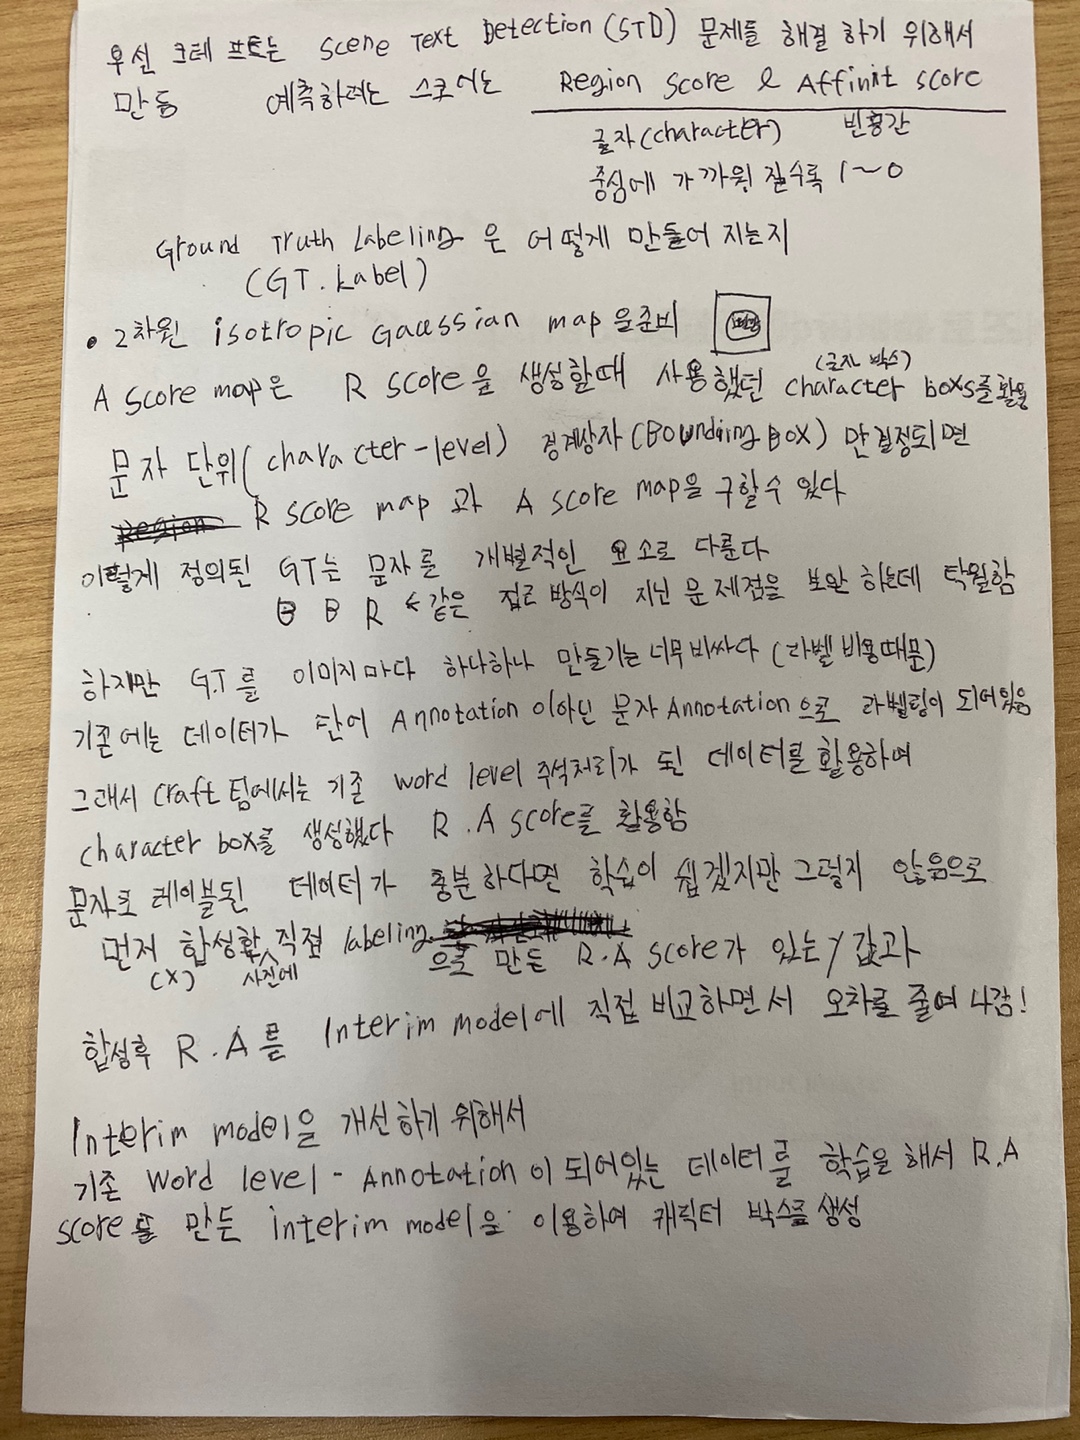 우선 크레프트는 Scene Text Detection (STD) 문제를 해결 하기 위해서
만듬 예측하려는 스코어는 Region Score & Affinit score
글자(character) 빈흥간
중심에 가까워 질수록 1~0
Ground Truth Labeling 은 어떻게 만들어 지는지
(GT. Label)
• 2차원 isotropic Gaussian map 을준비
(글자 박스)
A Score map은 R Score을 생성할때 사용했던 character boxs를 활용
문자 단위(character-level) 경계상자(Bounding Box) 만 결정되면
R score map 과 A score map을 구할수 있다
이렇게 정의된 GT는 문자를 개별적인 요소로 다룬다
B B R ← 같은 접근 방식이 지닌 문제점을 보완 하는데 탁월함
하지만 G.T를 이미지마다 하나하나 만들기는 너무 비싸다 (라벨 비용때문)
기존에는 데이터가 단어 Annotation 이아닌 문자 Annotation으로 라벨링이 되어있음
그래서 craft 팀에서는 기존 word level 주석처리가 된 데이터를 활용하여
character box를 생성했다 R.A score를 활용함
문자로 레이블된 데이터가 충분하다면 학습이 쉽겠지만 그렇지 않음으로
먼저 합성할 직접 labeling
(X) 사진에 으로 만든 R.A score가 있는 y값과
합성후 R.A를 Interim model에 직접 비교하면서 오차를 줄여 나감!
Interim model을 개선하기 위해서
기존 Word level - Annotation이 되어있는 데이터를 학습을 해서 R.A
score를 만든 interim model을 이용하여 캐릭터 박스를 생성